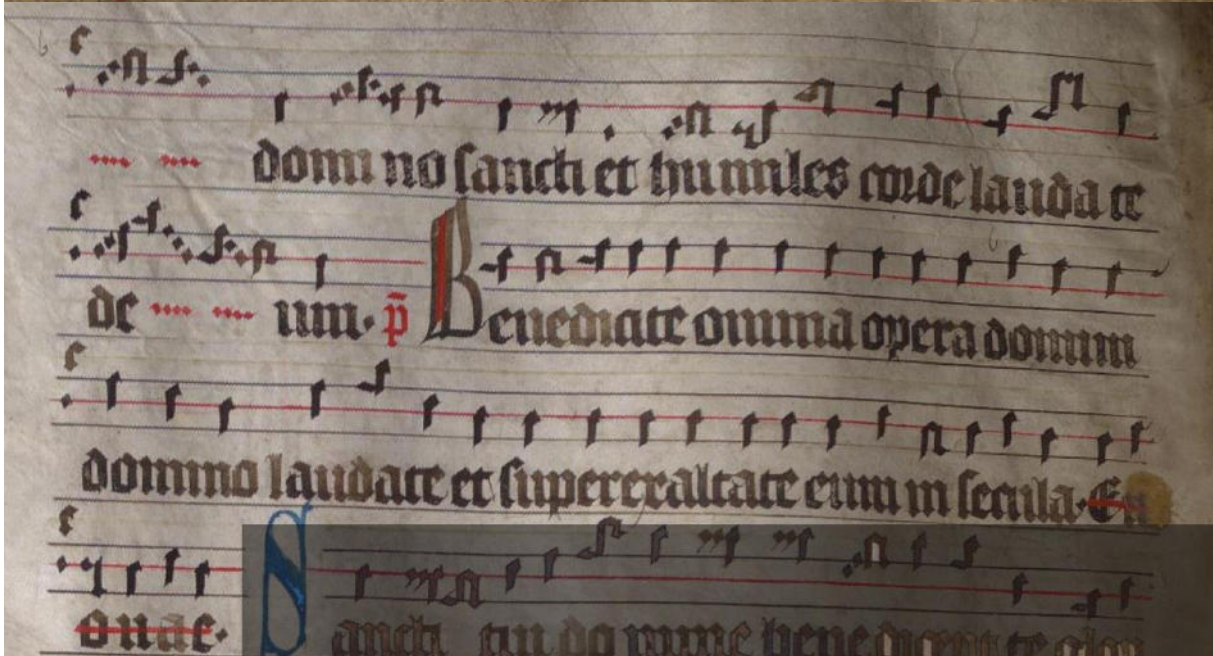 domino sancti et humiles corde laudate
de um. p̄ Benedicite omnia opera domini
domino laudate et superexaltate eum in secula. Eu
ouae.
Sancti tui domine benedicent te glori